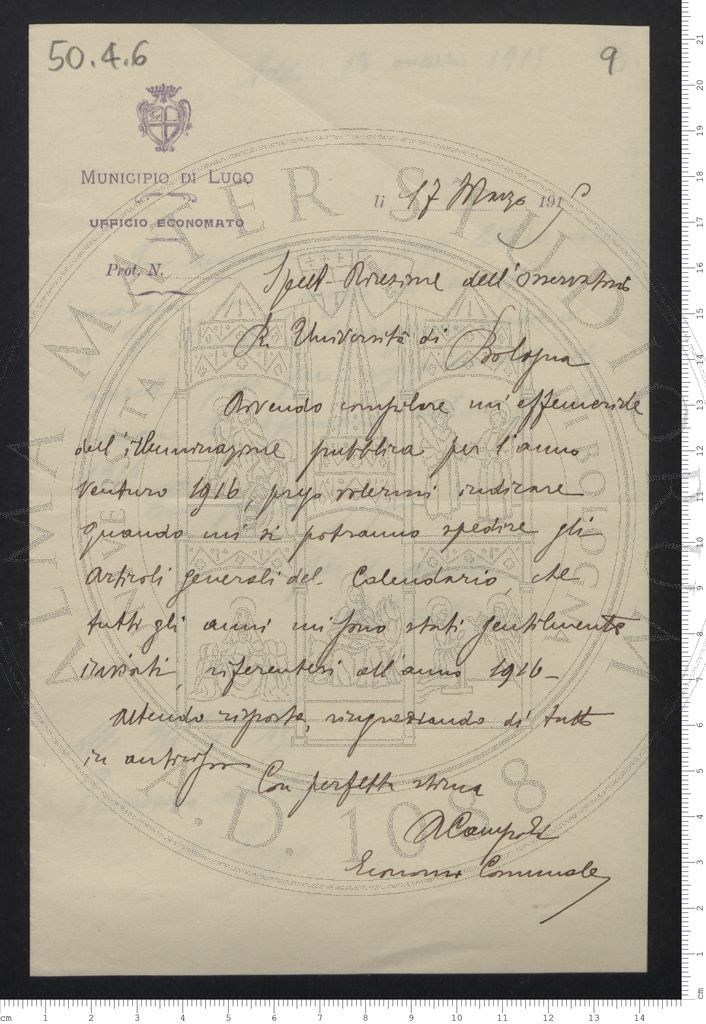 50.4.6
9
MUNICIPIO DI LUGO
UFFICIO ECONOMATO
Prot. N.
li 17 Marzo 1915
Spett. Direzione dell'Osservatorio
R. Università di Bologna
Dovendo compilare un'effemeride
dell'illuminazione pubblica per l'anno
venturo 1916, prego volermi indicare
quando mi si potranno spedire gli
articoli generali del Calendario, che
tutti gli anni mi sono stati gentilmente
inviati, riferentesi all'anno 1916 -
Attendo risposta, ringraziando di tutto
in anticipo
Con perfetta stima
Economo Comunale
ALMA MATER STUDIORUM
A.D. 1088